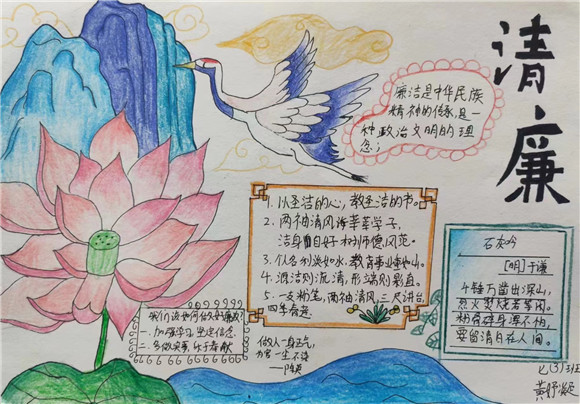 清廉
廉洁是中华民族
精神的传承,是一
种政治文明的理
念;
1. 以圣洁的心,教圣洁的书。
2. 两袖清风诲莘莘学子,
洁身自好树师德风范。
3. 个人名利淡如水,教育事业重如山。
4. 源洁则流清,形端则影直。
5. 一支粉笔,两袖清风,三尺讲台,
四季奔莲
石灰吟
[明]于谦
千锤万凿出深山,
烈火焚烧若等闲。
粉骨碎身浑不怕,
要留清白在人间。
我们该如何做好廉政?
一. 加强学习 坚定信念
二. 多做实事 乐于奉献
做人一身正气,
为官一尘不染
七(3)班